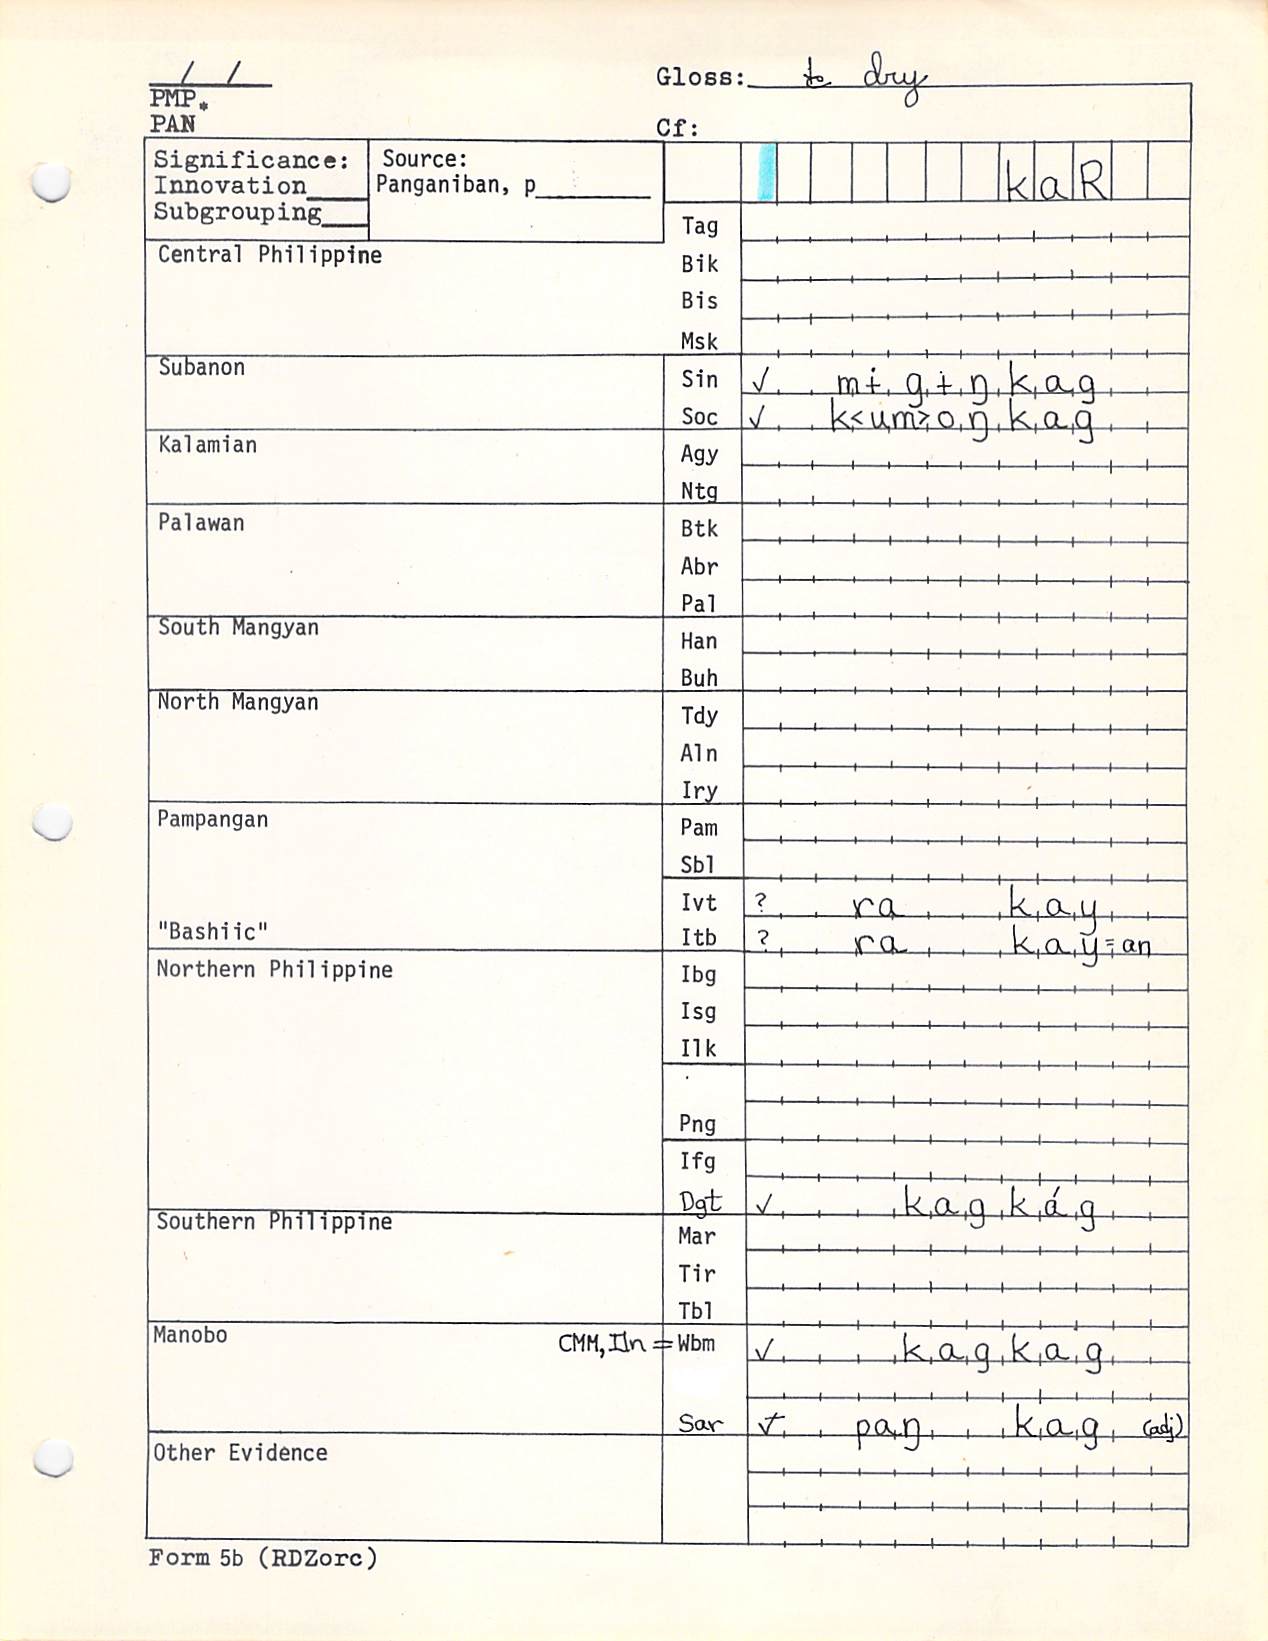 / /
Gloss: to dry
PMP*
PAN
Cf:
Significance:
Innovation____
Subgrouping___
Source:
Panganiban, p________
kaR
Tag
Central Philippine
Bik
Bis
Msk
Subanon
Sin ✓ mɨgɨŋkag
Soc ✓ k<um>oŋkag
Kalamian
Agy
Ntg
Palawan
Btk
Abr
Pal
South Mangyan
Han
Buh
North Mangyan
Tdy
Aln
Iry
Pampangan
Pam
Sbl
Ivt ? ra kay
"Bashiic"
Itb ? ra kay=an
Northern Philippine
Ibg
Isg
Ilk
Png
Ifg
Dgt ✓ kagkág
Southern Philippine
Mar
Tir
Tbl
Manobo
CMM, Iln = Wbm ✓ kagkag
Sar paŋ kag (adj)
Other Evidence
Form 5b (RDZorc)